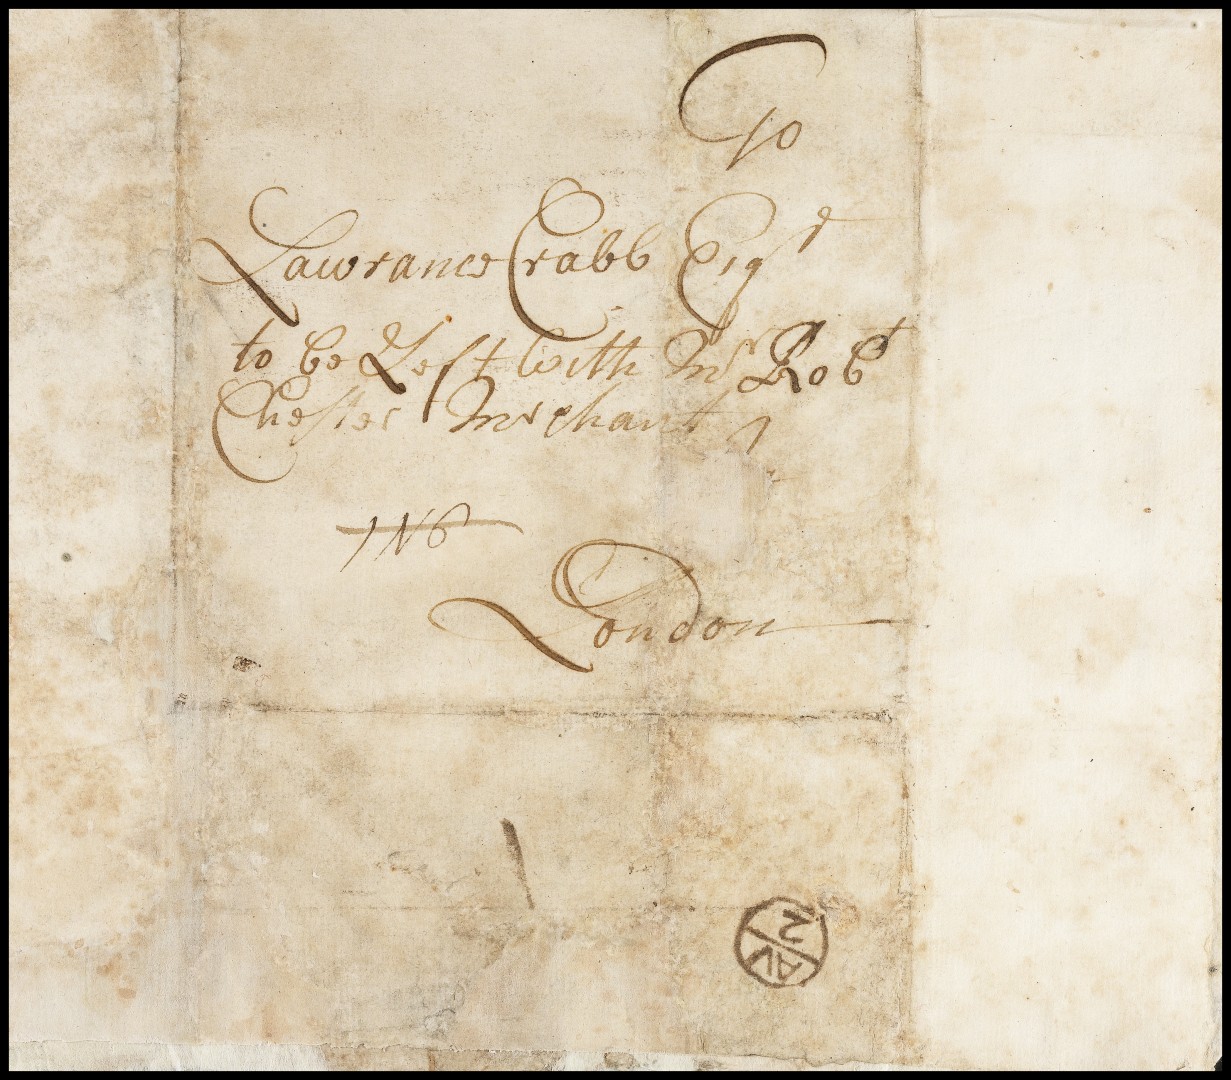 To
Lawrance Crabb Esqr
to be Left with Mr Robt
Chester Merchant
London
2
AV